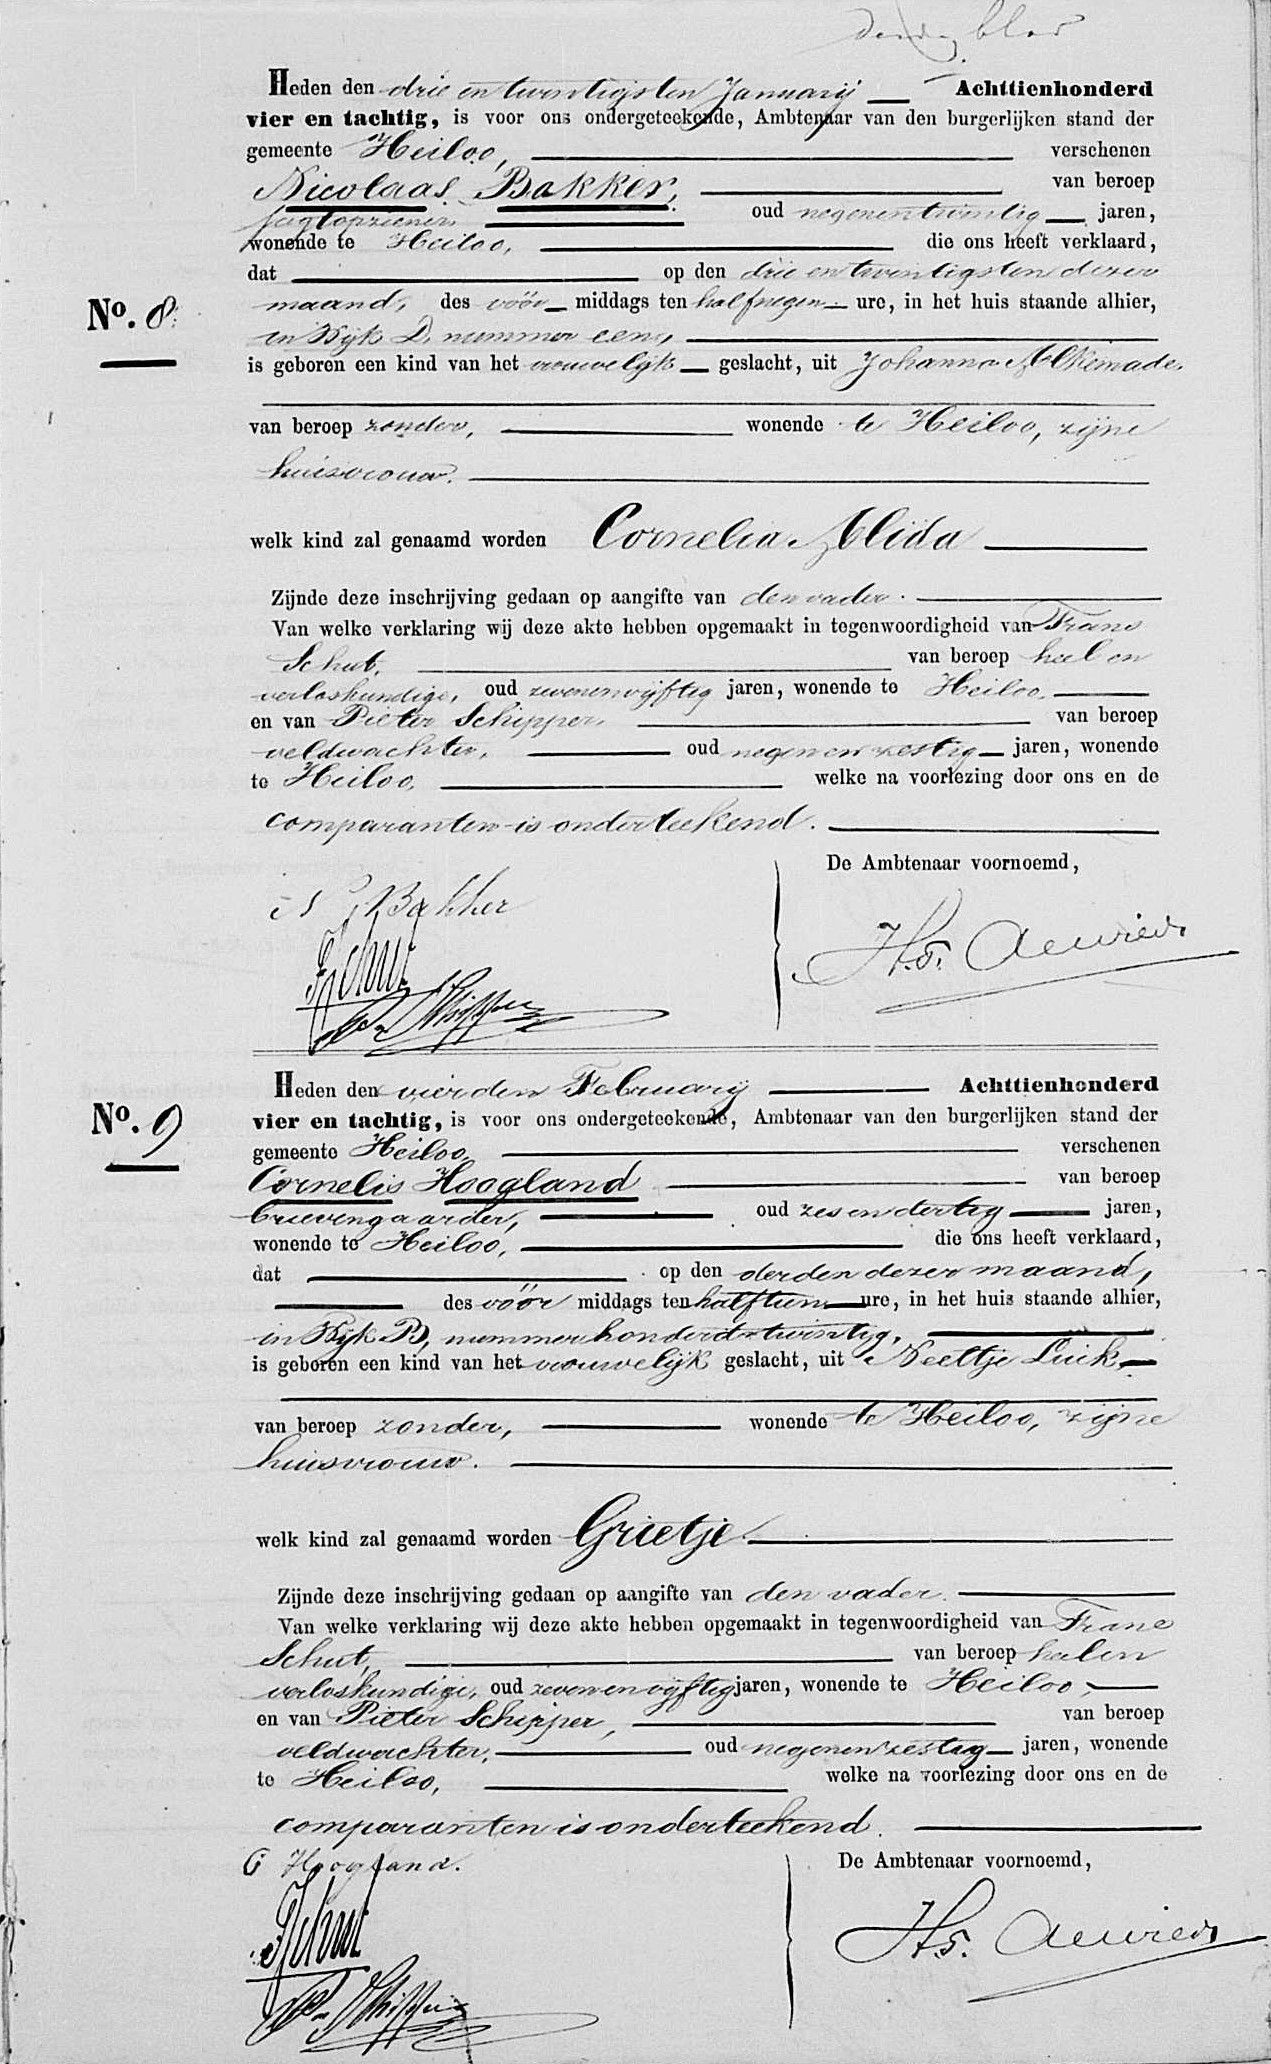 derde blad
Heden den drie en twintigsten Januarij Achttienhonderd
vier en tachtig, is voor ons ondergeteekende, Ambtenaar van den burgerlijken stand der
gemeente Heiloo, verschenen
Nicolaas Bakker, van beroep
jagtopziener, oud negenentwintig jaren,
wonende te Heiloo, die ons heeft verklaard,
dat op den drie en twintigsten dezer
No. 8. maand, des vóór middags ten half negen ure, in het huis staande alhier,
in Wijk D, nummer een,
is geboren een kind van het vrouwelijk geslacht, uit Johanna Alkemade,
van beroep zonder, wonende te Heiloo, zijne
huisvrouw.
welk kind zal genaamd worden Cornelia Alida
Zijnde deze inschrijving gedaan op aangifte van den vader.
Van welke verklaring wij deze akte hebben opgemaakt in tegenwoordigheid van Frans
Schut, van beroep heel en
verloskundige, oud zevenenvijftig jaren, wonende te Heiloo,
en van Pieter Schipper, van beroep
veldwachter, oud negenenzestig jaren, wonende
te Heiloo, welke na voorlezing door ons en de
comparanten is onderteekend.
De Ambtenaar voornoemd,
N Bakker
F Schut
P. Schipper
Heden den vierden Februarij Achttienhonderd
No. 9 vier en tachtig, is voor ons ondergeteekende, Ambtenaar van den burgerlijken stand der
gemeente Heiloo, verschenen
Cornelis Hoogland van beroep
brievengaarder, oud zesendertig jaren,
wonende te Heiloo, die ons heeft verklaard,
dat op den derden dezer maand,
des vóór middags ten half tien ure, in het huis staande alhier,
in Wijk B, nummer honderd twintig,
is geboren een kind van het vrouwelijk geslacht, uit Neeltje Luik,
van beroep zonder, wonende te Heiloo, zijne
huisvrouw.
welk kind zal genaamd worden Grietje
Zijnde deze inschrijving gedaan op aangifte van den vader.
Van welke verklaring wij deze akte hebben opgemaakt in tegenwoordigheid van Frans
Schut, van beroep heel en
verloskundige, oud zevenenvijftig jaren, wonende te Heiloo,
en van Pieter Schipper, van beroep
veldwachter, oud negenenzestig jaren, wonende
te Heiloo, welke na voorlezing door ons en de
comparanten is onderteekend.
C Hoogland. De Ambtenaar voornoemd,
F Schut
P. Schipper